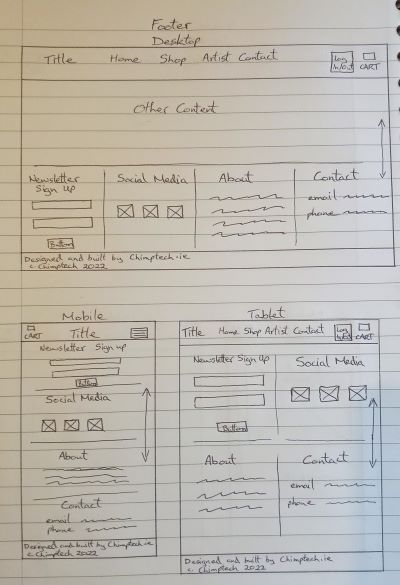 Footer
Desktop
Title Home Shop Artist Contact Log In/Out CART
Other Content
Newsletter Sign Up
Social Media
About
Contact
email
phone
Button
Designed and built by Chimptech.ie
c Chimptech 2022
Mobile
CART Title
Newsletter Sign up
Button
Social Media
About
Contact
email
phone
Designed and built by Chimptech.ie
c Chimptech 2022
Tablet
Title Home Shop Artist Contact Log In/Out CART
Newsletter Sign Up
Social Media
Button
About
Contact
email
phone
Designed and built by Chimptech.ie
c Chimptech 2022